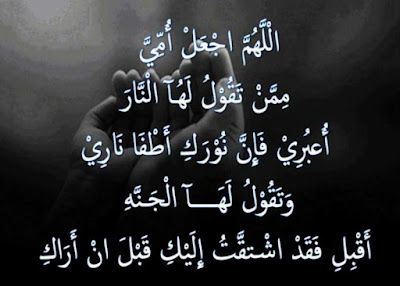 اللَّهُمَّ اجْعَلْ أُمِّيَّ
مِمَّنْ تَقُوْلُ لَهُآ الْنَّارَ
أُعبُرِيْ فَإِنَّ نُوْرَكِ أَطْفَا نَارِيْ
وَتَقُوْلُ لَهَـــآ الْجَنَّهِ
أَقْبِلِ فَقَدْ اشْتقَّتُ إِلَيْكِ قَبْلَ انْ أَرَاكِ